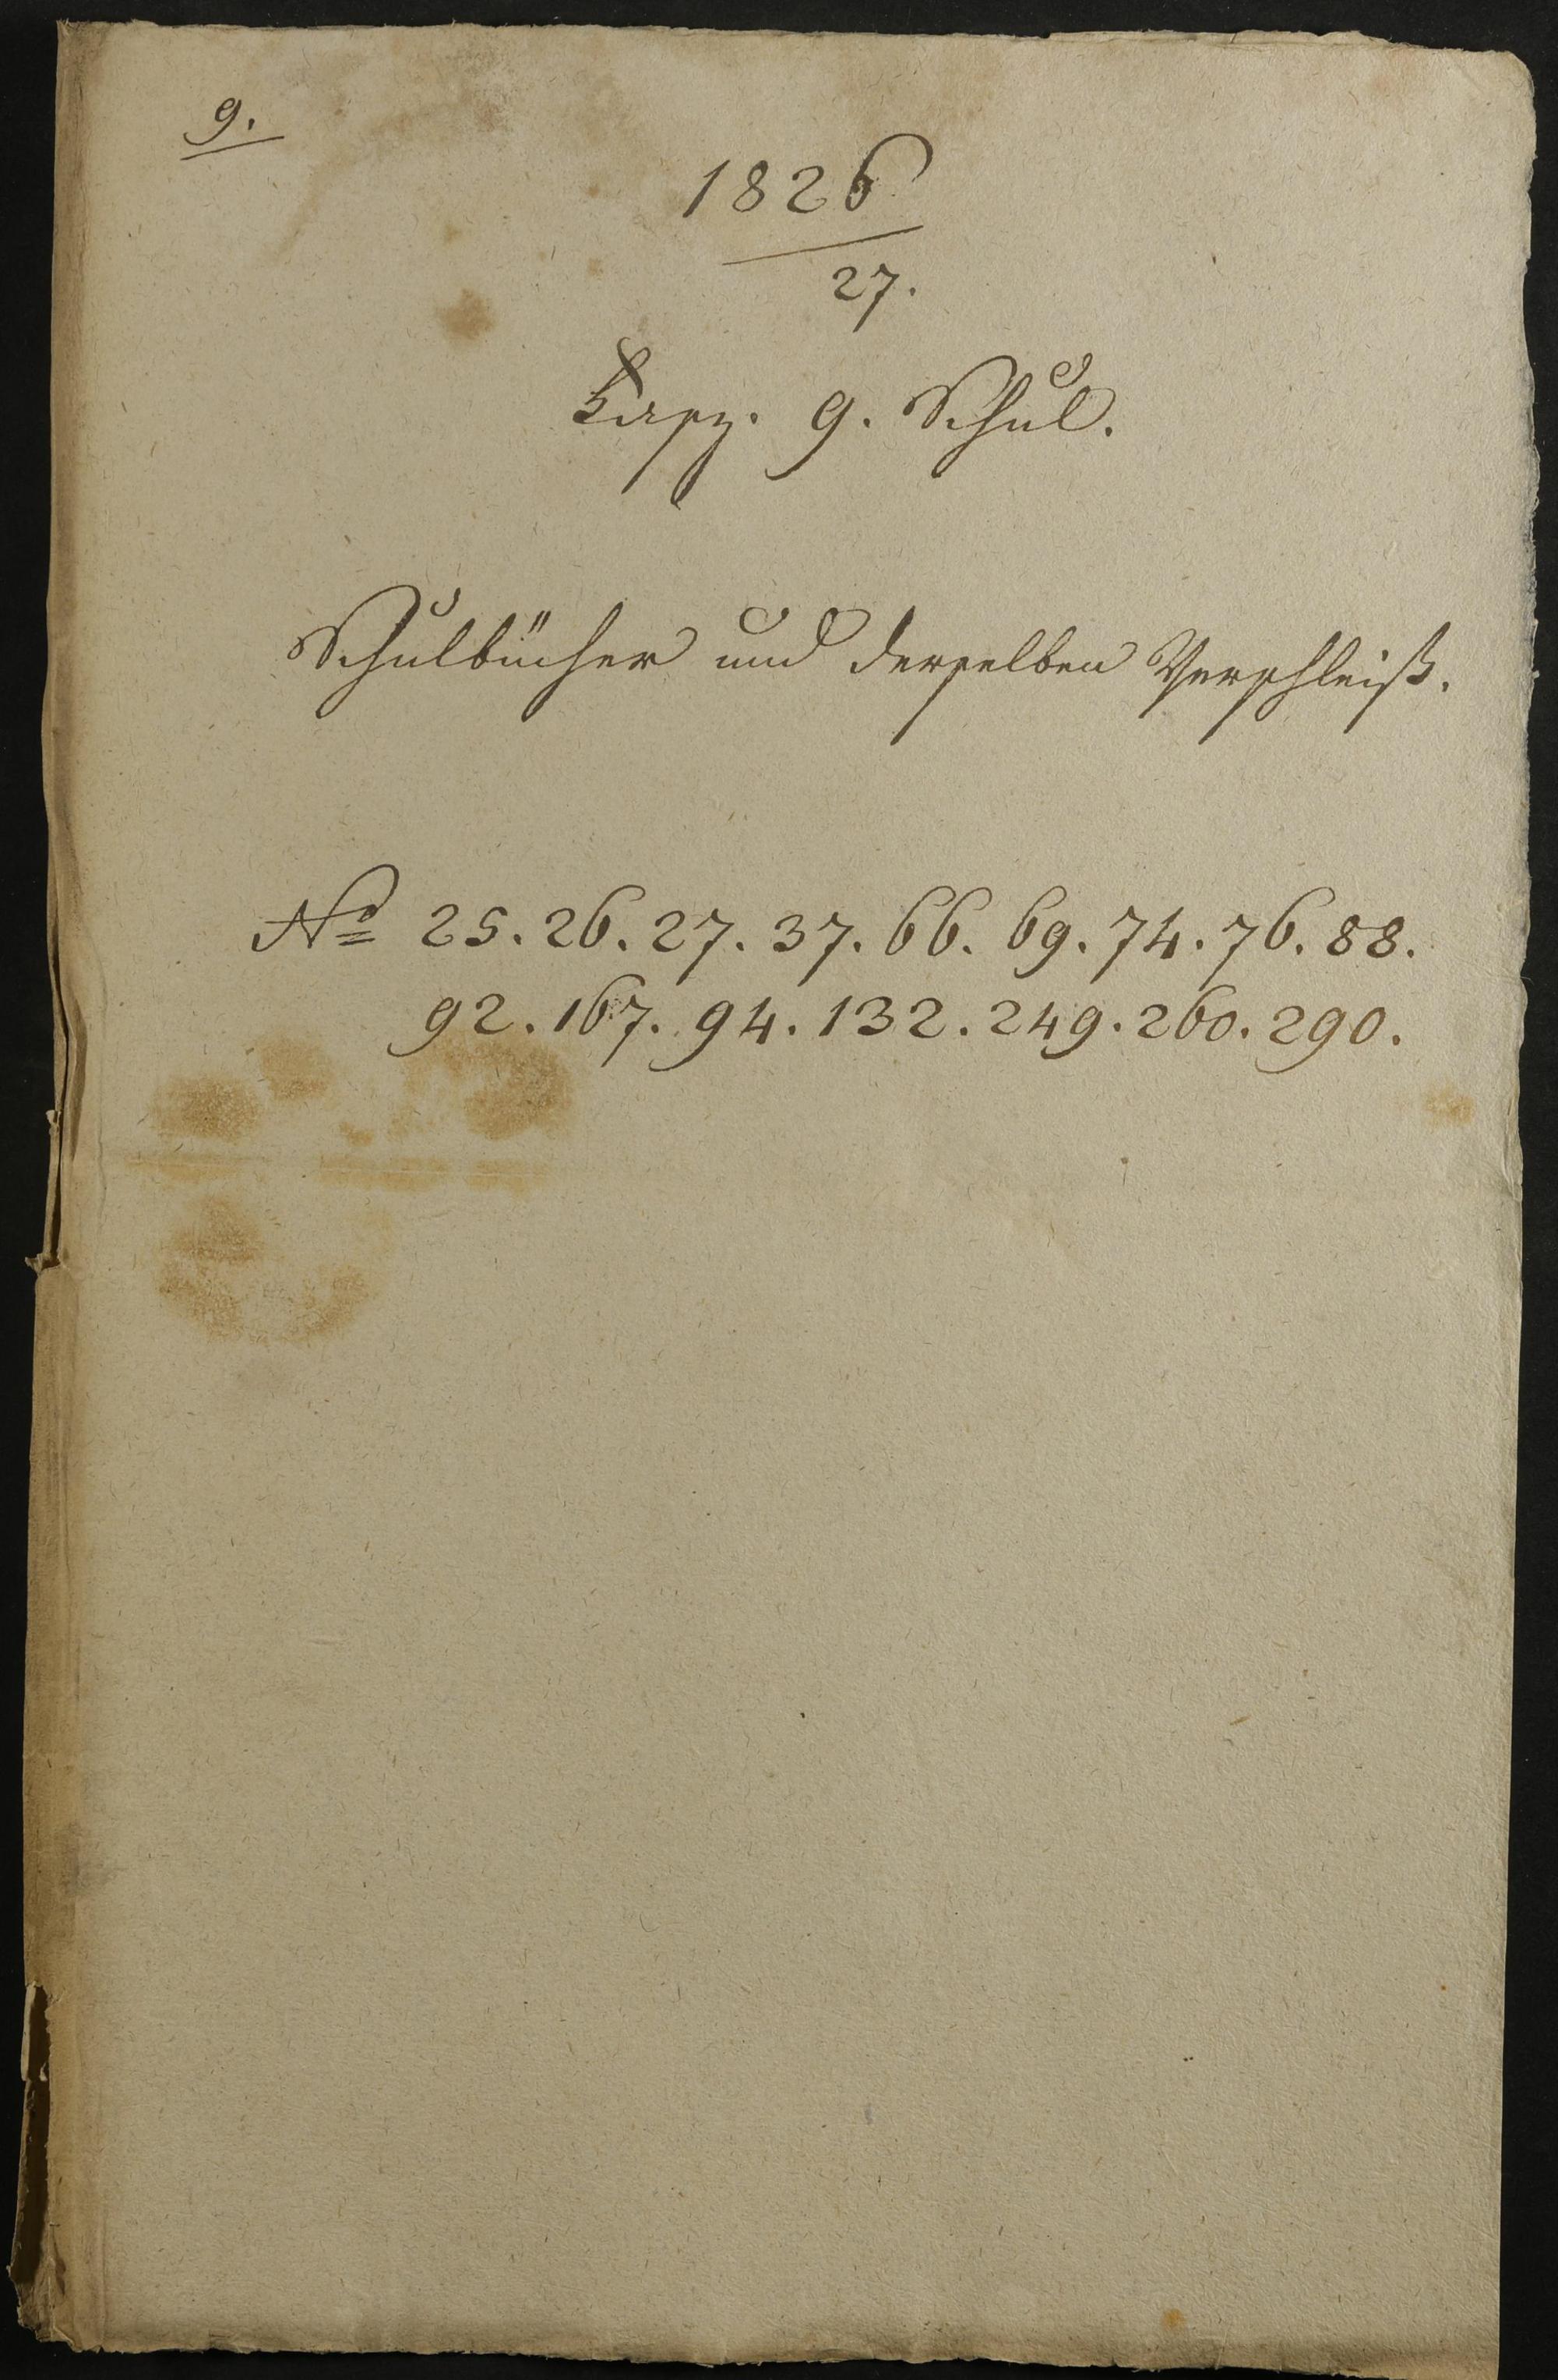 9.
1826
27.
Fasz. 9. Schul.
Schulbücher und derselben Verschleiß.
No 25. 26. 27. 37. 66. 69. 74. 76. 88.
92. 167. 94. 132. 249. 260. 290.